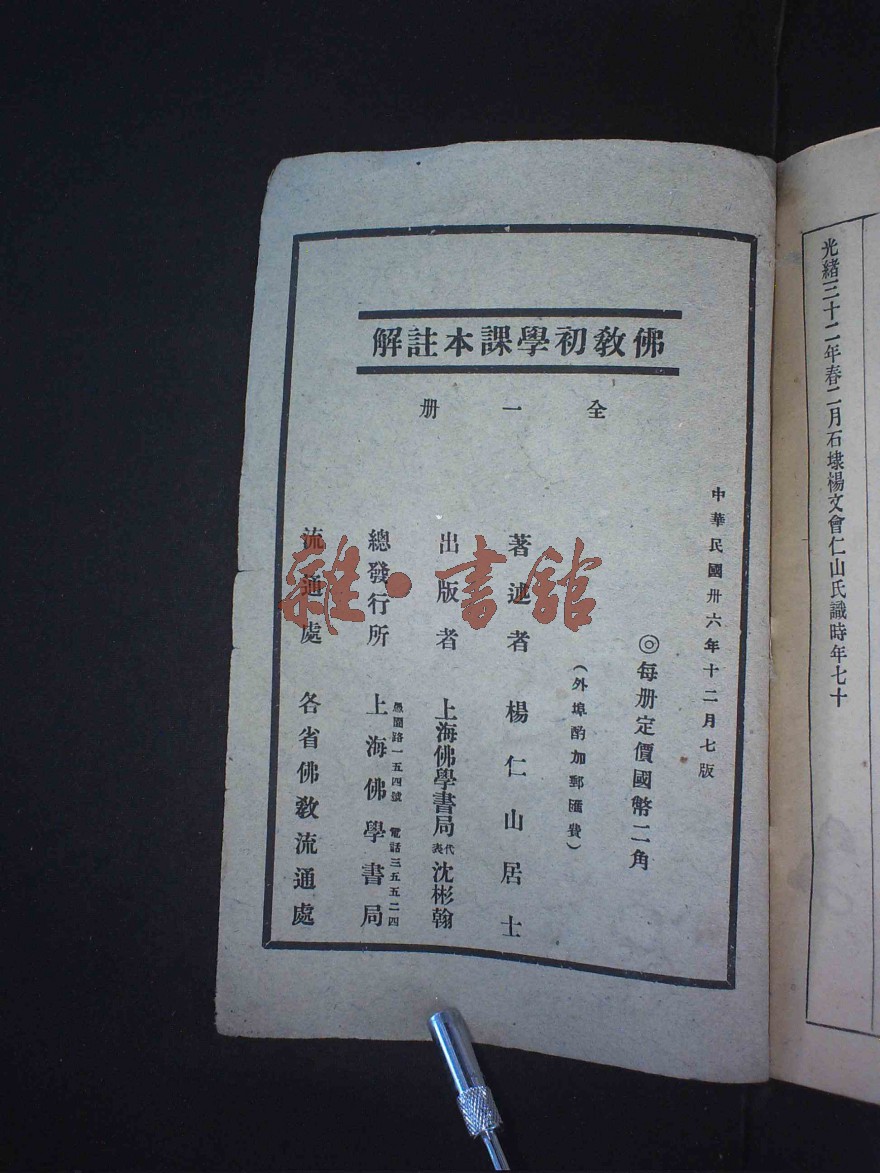 光緒三十二年春二月石埭楊文會仁山氏識時年七十
佛敎初學課本註解
全一册
中華民國卅六年十二月七版
◎每册定價國幣二角
（外埠酌加郵匯費）
著述者 楊仁山居士
出版者 上海佛學書局代表沈彬翰
總發行所 上海佛學書局
愚園路一五四號 電話三五五二四
流通處 各省佛敎流通處
雜·書館